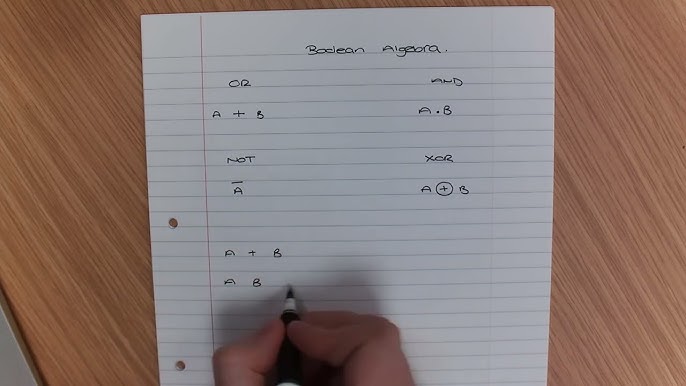 Boolean Algebra.
OR AND
A + B A . B
NOT XOR
A̅ A ⊕ B
A + B
A B